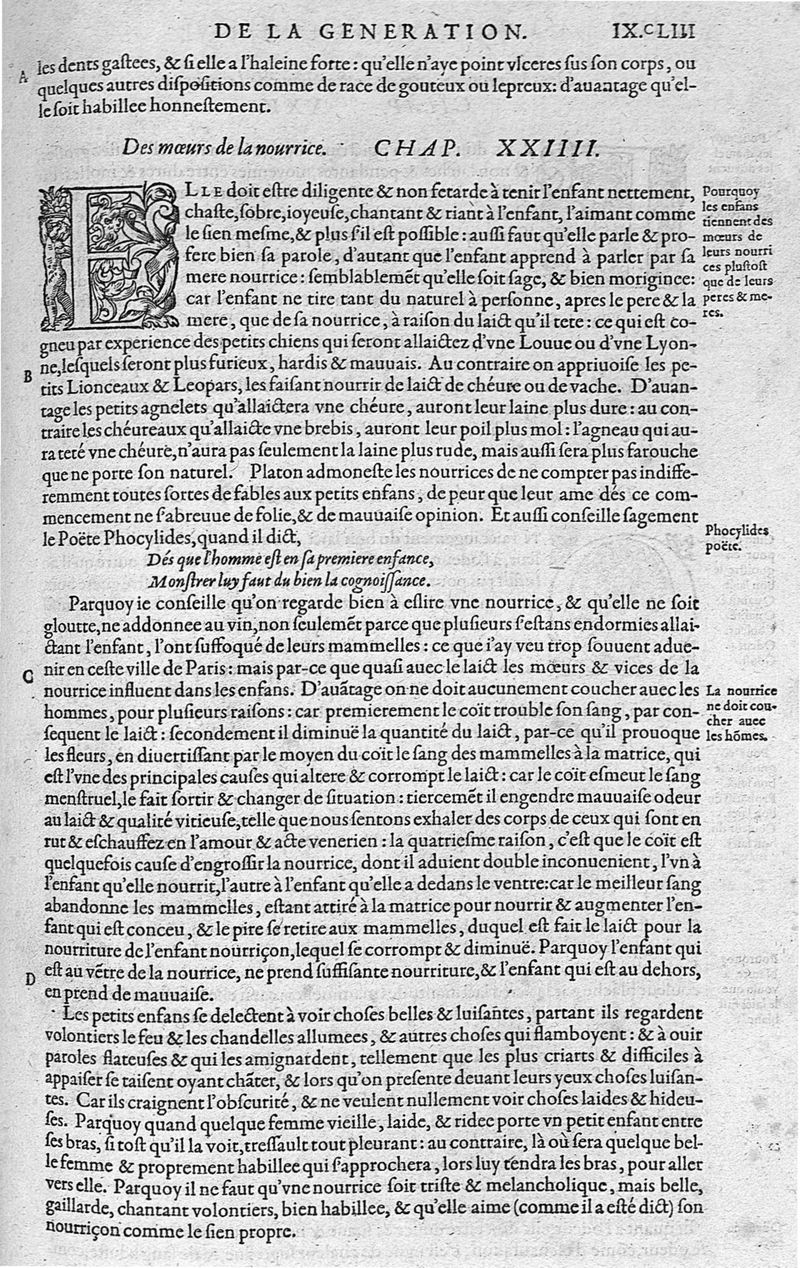 DE LA GENERATION. IX.cLIII
A
les dents gastees, & si elle a l'haleine forte : qu'elle n'aye point vlceres sus son corps, ou
quelques autres dispositions comme de race de gouteux ou lepreux: d'auantage qu'el-
le soit habillee honnestement.
Des mœurs de la nourrice. CHAP. XXIIII.
ELLE doit estre diligente & non fetarde à tenir l'enfant nettement,
chaste, sobre, ioyeuse, chantant & riant à l'enfant, l'aimant comme
le sien mesme, & plus s'il est possible : aussi faut qu'elle parle & pro-
fere bien sa parole, d'autant que l'enfant apprend à parler par sa
mere nourrice : semblablemẽt qu'elle soit sage, & bien moriginee:
car l'enfant ne tire tant du naturel à personne, apres le pere & la
mere, que de sa nourrice, à raison du laict qu'il tete : ce qui est co-
Pourquoy
les enfans
tiennent des
mœurs de
leurs nourri
ces plustost
que de leurs
peres & me-
res.
gneu par experience des petits chiens qui seront allaictez d'vne Louue ou d'vne Lyon-
B
ne, lesquels seront plus furieux, hardis & mauuais. Au contraire on appriuoise les pe-
tits Lionceaux & Leopars, les faisant nourrir de laict de chéure ou de vache. D'auan-
tage les petits agnelets qu'allaictera vne chéure, auront leur laine plus dure : au con-
traire les chéureaux qu'allaicte vne brebis, auront leur poil plus mol : l'agneau qui au-
ra teté vne chéure, n'aura pas seulement la laine plus rude, mais aussi sera plus farouche
que ne porte son naturel. Platon admoneste les nourrices de ne compter pas indiffe-
remment toutes sortes de fables aux petits enfans, de peur que leur ame dés ce com-
mencement ne s'abreuue de folie, & de mauuaise opinion. Et aussi conseille sagement
le Poëte Phocylides, quand il dict,
Phocylides
poëte.
Dés que l'homme est en sa premiere enfance,
Monstrer luy faut du bien la cognoissance.
Parquoy ie conseille qu'on regarde bien à eslire vne nourrice, & qu'elle ne soit
gloutte, ne addonnee au vin, non seulemẽt parce que plusieurs s'estans endormies allai-
ctant l'enfant, l'ont suffoqué de leurs mammelles : ce que i'ay veu trop souuent adue-
C
nir en ceste ville de Paris : mais par-ce que quasi auec le laict les mœurs & vices de la
nourrice influent dans les enfans. D'auãtage on ne doit aucunement coucher auec les
hommes, pour plusieurs raisons : car premierement le coït trouble son sang, par con-
sequent le laict : secondement il diminuë la quantité du laict, par-ce qu'il prouoque
La nourrice
ne doit cou-
cher auec
les hõmes.
les fleurs, en diuertissant par le moyen du coït le sang des mammelles à la matrice, qui
est l'vne des principales causes qui altere & corrompt le laict : car le coït esmeut le sang
menstruel, le fait sortir & changer de situation : tiercemẽt il engendre mauuaise odeur
au laict & qualité vitieuse, telle que nous sentons exhaler des corps de ceux qui sont en
rut & eschauffez en l'amour & acte venerien : la quatriesme raison, c'est que le coït est
quelquefois cause d'engrossir la nourrice, dont il aduient double inconuenient, l'vn à
l'enfant qu'elle nourrit, l'autre à l'enfant qu'elle a dedans le ventre: car le meilleur sang
abandonne les mammelles, estant attiré à la matrice pour nourrir & augmenter l'en-
fant qui est conceu, & le pire se retire aux mammelles, duquel est fait le laict pour la
nourriture de l'enfant nourriçon, lequel se corrompt & diminuë. Parquoy l'enfant qui
D
est au vẽtre de la nourrice, ne prend suffisante nourriture, & l'enfant qui est au dehors,
en prend de mauuaise.
Les petits enfans se delectent à voir choses belles & luisantes, partant ils regardent
volontiers le feu & les chandelles allumees, & autres choses qui flamboyent : & à ouir
paroles flateuses & qui les amignardent, tellement que les plus criarts & difficiles à
appaiser se taisent oyant chãter, & lors qu'on presente deuant leurs yeux choses luisan-
tes. Car ils craignent l'obscurité, & ne veulent nullement voir choses laides & hideu-
ses. Parquoy quand quelque femme vieille, laide, & ridee porte vn petit enfant entre
ses bras, si tost qu'il la voit, tressault tout pleurant : au contraire, là où sera quelque bel-
le femme & proprement habillee qui s'approchera, lors luy tendra les bras, pour aller
vers elle. Parquoy il ne faut qu'vne nourrice soit triste & melancholique, mais belle,
gaillarde, chantant volontiers, bien habillee, & qu'elle aime (comme il a esté dict) son
nourriçon comme le sien propre.